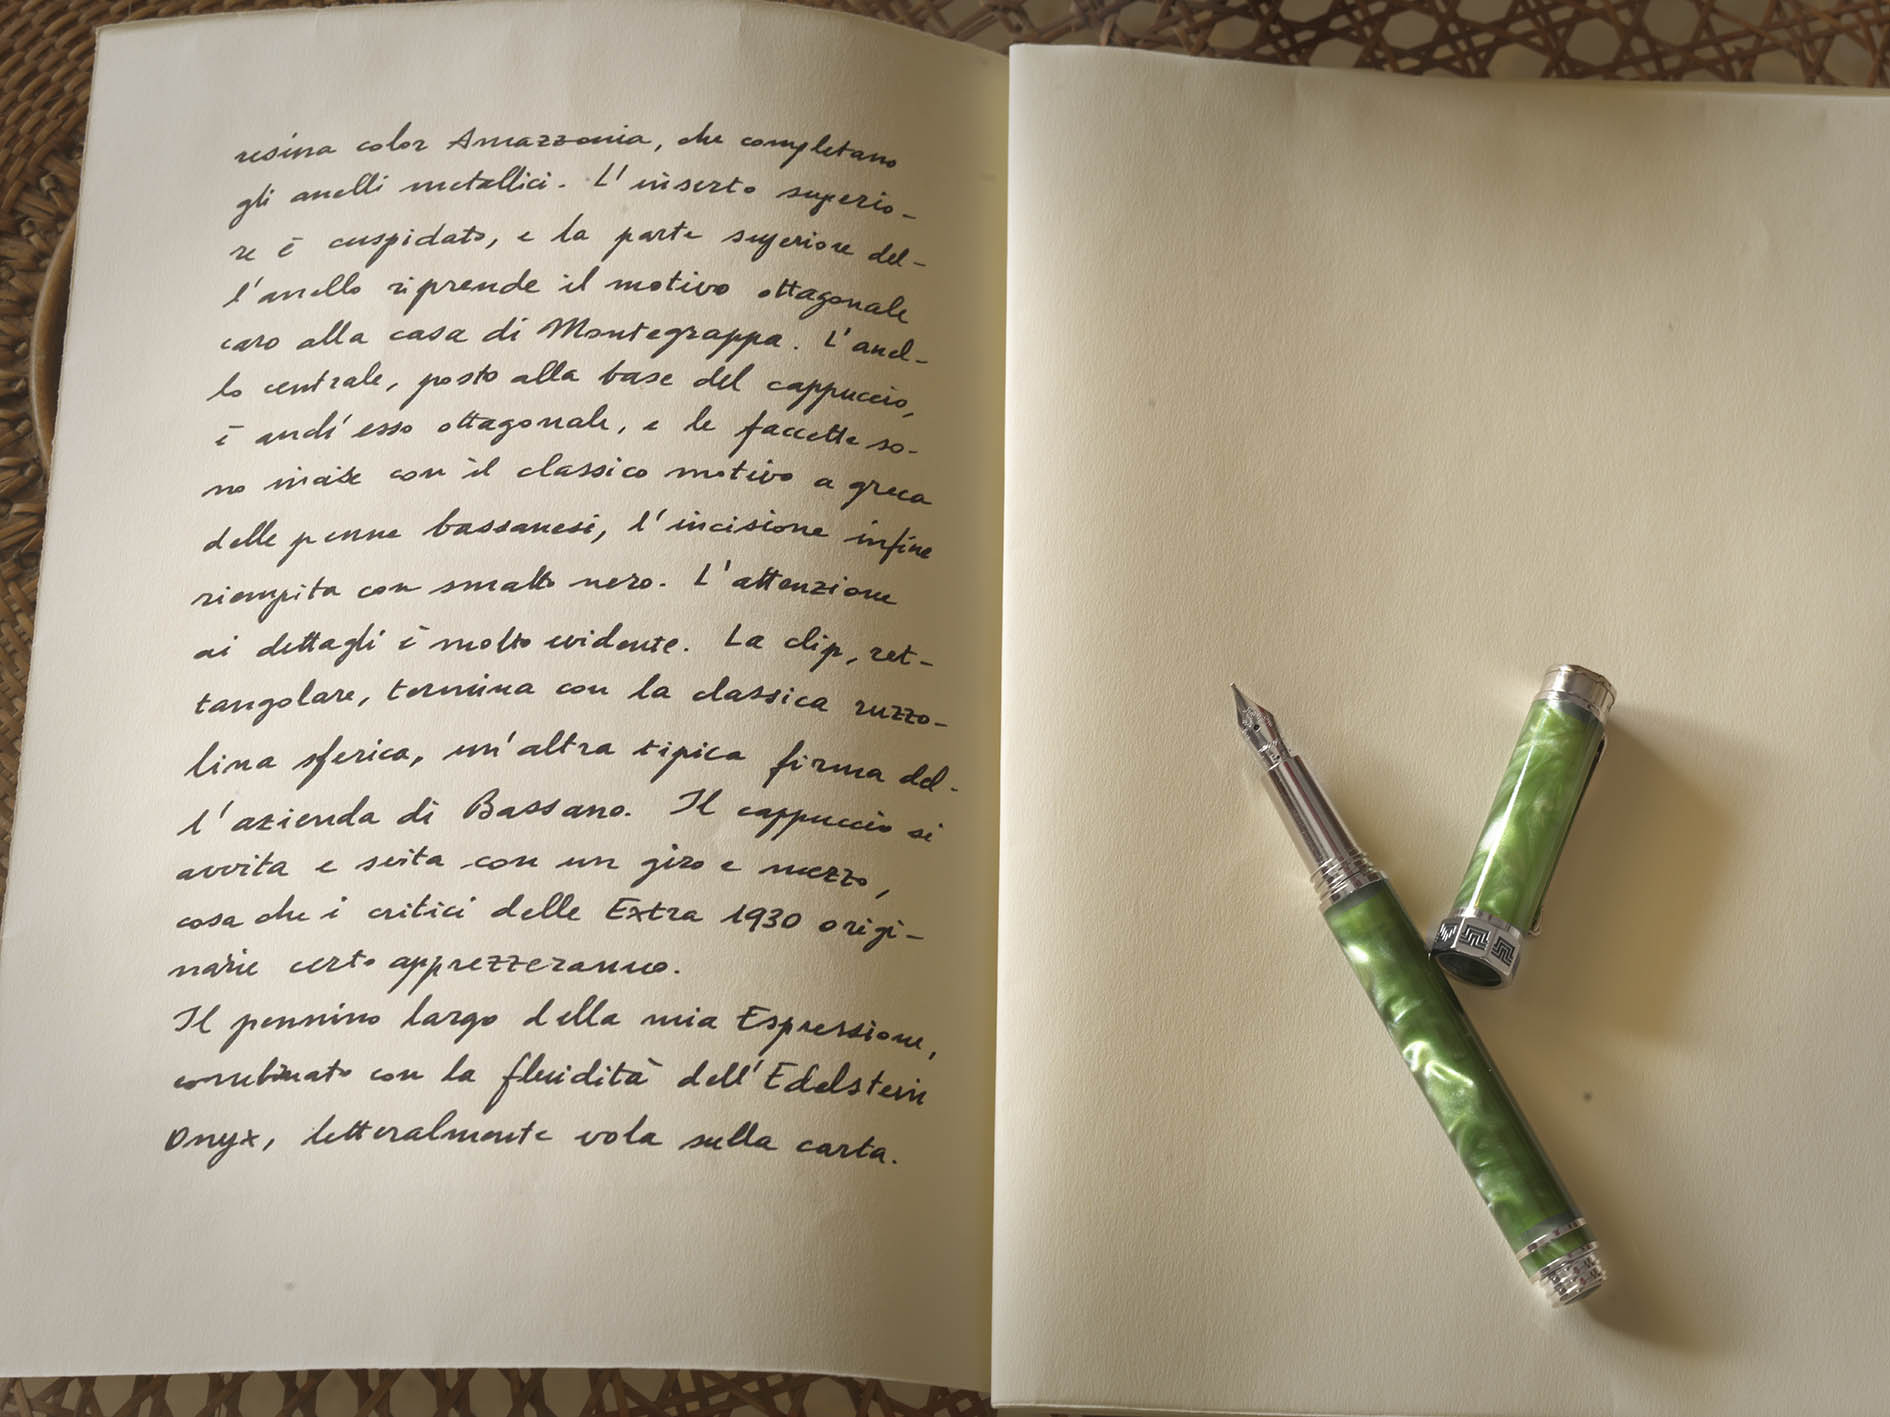 resina color Amazzonia, che completano
gli anelli metallici. L'inserto superio-
re è cuspidato, e la parte superiore del-
l'anello riprende il motivo ottagonale
caro alla casa di Montegrappa. L'anel-
lo centrale, posto alla base del cappuccio,
è anch'esso ottagonale, e le faccette so-
no incise con il classico motivo a greca
delle penne bassanesi, l'incisione infine
riempita con smalto nero. L'attenzione
ai dettagli è molto evidente. La clip, ret-
tangolare, termina con la classica ruzzo-
lina sferica, un'altra tipica firma del-
l'azienda di Bassano. Il cappuccio si
avvita e svita con un giro e mezzo,
cosa che i critici delle Extra 1930 origi-
narie certo apprezzeranno.
Il pennino largo della mia Espressione,
combinato con la fluidità dell'Edelstein
Onyx, letteralmente vola sulla carta.